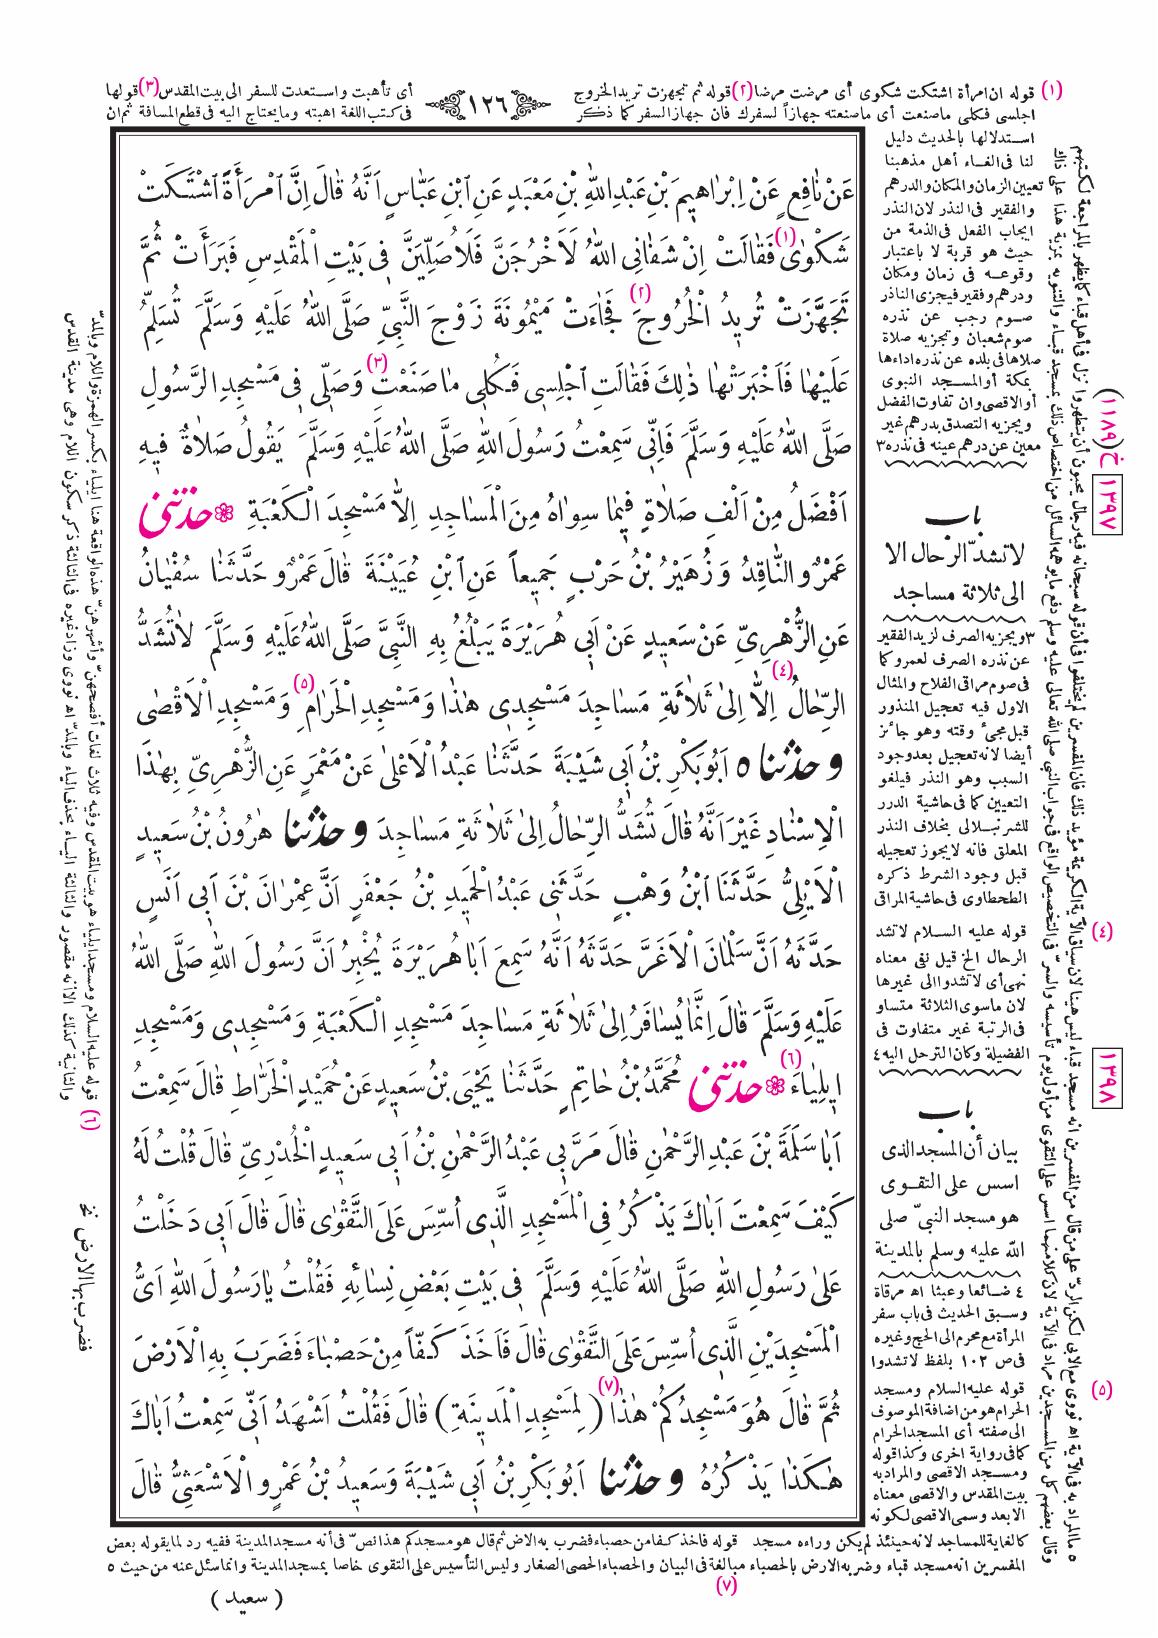 (١) قوله ان امرأة اشتكت شكوى أى مرضت مرضا (٢) قوله ثم تجهزت تريد الخروج
أى تأهبت واستعدت للسفر الى بيت المقدس (٣) قولها
١٢٦
اجلسى فكلى ماصنعت أى ماصنعته جهازاً لسفرك فان جهاز السفر كما ذكر
فى كتب اللغة اهبته وما يحتاج اليه فى قطع المسافة ثم ان
عَنْ نَافِعٍ عَنْ اِبْرَاهِيمَ بْنِ عَبْدِ اللّٰهِ بْنِ مَعْبَدٍ عَنِ ابْنِ عَبَّاسٍ اَنَّهُ قَالَ اِنَّ امْرَأَةً اشْتَكَتْ
شَكْوٰى (١) فَقَالَتْ اِنْ شَفَانِى اللّٰهُ لَاَخْرُجَنَّ فَلَاُصَلِّيَنَّ فِى بَيْتِ الْمَقْدِسِ فَبَرَأَتْ ثُمَّ
تَجَهَّزَتْ تُرِيدُ الْخُرُوجَ (٢) فَجَاءَتْ مَيْمُونَةَ زَوْجَ النَّبِىِّ صَلَّى اللّٰهُ عَلَيْهِ وَسَلَّمَ تُسَلِّمُ
عَلَيْهَا فَاَخْبَرَتْهَا ذٰلِكَ فَقَالَتِ اجْلِسِى فَكُلِى مَا صَنَعْتِ (٣) وَصَلِّى فِى مَسْجِدِ الرَّسُولِ
صَلَّى اللّٰهُ عَلَيْهِ وَسَلَّمَ فَاِنِّى سَمِعْتُ رَسُولَ اللّٰهِ صَلَّى اللّٰهُ عَلَيْهِ وَسَلَّمَ يَقُولُ صَلَاةٌ فِيهِ
اَفْضَلُ مِنْ اَلْفِ صَلَاةٍ فِيمَا سِوَاهُ مِنَ الْمَسَاجِدِ اِلاَّ مَسْجِدَ الْكَعْبَةِ ❀ حدثنى
عَمْرٌو النَّاقِدُ وَزُهَيْرُ بْنُ حَرْبٍ جَمِيعاً عَنِ ابْنِ عُيَيْنَةَ قَالَ عَمْرٌو حَدَّثَنَا سُفْيَانُ
عَنِ الزُّهْرِىِّ عَنْ سَعِيدٍ عَنْ اَبِى هُرَيْرَةَ يَبْلُغُ بِهِ النَّبِىَّ صَلَّى اللّٰهُ عَلَيْهِ وَسَلَّمَ لَا تُشَدُّ
الرِّحَالُ (٤) اِلاَّ اِلىٰ ثَلَاثَةِ مَسَاجِدَ مَسْجِدِى هٰذَا وَمَسْجِدِ الْحَرَامِ (٥) وَمَسْجِدِ الْاَقْصٰى
و حدثنا ٥ اَبُو بَكْرِ بْنُ اَبِى شَيْبَةَ حَدَّثَنَا عَبْدُ الْاَعْلىٰ عَنْ مَعْمَرٍ عَنِ الزُّهْرِىِّ بِهٰذَا
الْاِسْنَادِ غَيْرَ اَنَّهُ قَالَ تُشَدُّ الرِّحَالُ اِلىٰ ثَلَاثَةِ مَسَاجِدَ و حدثنا هٰرُونُ بْنُ سَعِيدٍ
الْاَيْلِىُّ حَدَّثَنَا ابْنُ وَهْبٍ حَدَّثَنِى عَبْدُ الْحَمِيدِ بْنُ جَعْفَرٍ اَنَّ عِمْرَانَ بْنَ اَبِى اَنَسٍ
حَدَّثَهُ اَنَّ سَلْمَانَ الْاَغَرَّ حَدَّثَهُ اَنَّهُ سَمِعَ اَبَا هُرَيْرَةَ يُخْبِرُ اَنَّ رَسُولَ اللّٰهِ صَلَّى اللّٰهُ
عَلَيْهِ وَسَلَّمَ قَالَ اِنَّمَا يُسَافَرُ اِلىٰ ثَلَاثَةِ مَسَاجِدَ مَسْجِدِ الْكَعْبَةِ وَمَسْجِدِى وَمَسْجِدِ
اِيلِيَاءَ (٦) ❀ حدثنى مُحَمَّدُ بْنُ حَاتِمٍ حَدَّثَنَا يَحْيَى بْنُ سَعِيدٍ عَنْ حُمَيْدٍ الْخَرَّاطِ قَالَ سَمِعْتُ
اَبَا سَلَمَةَ بْنَ عَبْدِ الرَّحْمٰنِ قَالَ مَرَّ بِى عَبْدُ الرَّحْمٰنِ بْنُ اَبِى سَعِيدٍ الْخُدْرِىِّ قَالَ قُلْتُ لَهُ
كَيْفَ سَمِعْتَ اَبَاكَ يَذْكُرُ فِى الْمَسْجِدِ الَّذِى اُسِّسَ عَلَى التَّقْوٰى قَالَ قَالَ اَبِى دَخَلْتُ
عَلىٰ رَسُولِ اللّٰهِ صَلَّى اللّٰهُ عَلَيْهِ وَسَلَّمَ فِى بَيْتِ بَعْضِ نِسَائِهِ فَقُلْتُ يَا رَسُولَ اللّٰهِ اَىُّ
الْمَسْجِدَيْنِ الَّذِى اُسِّسَ عَلَى التَّقْوٰى قَالَ فَاَخَذَ كَفّاً مِنْ حَصْبَاءَ فَضَرَبَ بِهِ الْاَرْضَ
ثُمَّ قَالَ هُوَ مَسْجِدُكُمْ هٰذَا (٧) (لِمَسْجِدِ الْمَدِينَةِ) قَالَ فَقُلْتُ اَشْهَدُ اَنِّى سَمِعْتُ اَبَاكَ
هٰكَذَا يَذْكُرُهُ و حدثنا اَبُو بَكْرِ بْنُ اَبِى شَيْبَةَ وَسَعِيدُ بْنُ عَمْرٍو الْاَشْعَثِىُّ قَالَ
استدلالها بالحديث دليل
لنا فى الغاء أهل مذهبنا
تعيين الزمان والمكان والدرهم
والفقير فى النذر لان النذر
ايجاب الفعل فى الذمة من
حيث هو قربة لا باعتبار
وقوعه فى زمان ومكان
ودرهم وفقير فيجزى الناذر
صوم رجب عن نذره
صوم شعبان وتجزيه صلاة
صلاها فى بلده عن نذره اداءها
بمكة أو المسجد النبوى
أو الاقصى وان تفاوت الفضل
ويجزيه التصدق بدرهم غير
معين عن درهم عينه فى نذره ٣
باب
لاتشدّ الرحال الا
الى ثلاثة مساجد
٣ ويجزيه الصرف لزيد الفقير
عن نذره الصرف لعمرو كما
فى صوم مراقى الفلاح والمثال
الاول فيه تعجيل المنذور
قبل مجئ وقته وهو جائز
أيضا لانه تعجيل بعد وجود
السبب وهو النذر فيلغو
التعيين كما فى حاشية الدرر
للشرنبلالى بخلاف النذر
المعلق فانه لا يجوز تعجيله
قبل وجود الشرط ذكره
الطحطاوى فى حاشية المراقى
(٤) قوله عليه السلام لاتشد
الرحال الخ قيل نفى معناه
نهى أى لاتشدوا الى غيرها
لان ماسوى الثلاثة متساو
فى الرتبة غير متفاوت فى
الفضيلة وكان الترحل اليه ٤
باب
بيان أن المسجد الذى
اسس على التقوى
هو مسجد النبىّ صلى
الله عليه وسلم بالمدينة
٤ ضائعا وعبثا اه مرقاة
وسبق الحديث فى باب سفر
المرأة مع محرم الى الحج وغيره
فى ص ١٠٢ بلفظ لاتشدوا
(٥) قوله عليه السلام ومسجد
الحرام هو من اضافة الموصوف
الى صفته أى المسجد الحرام
كما فى رواية اخرى وكذا قوله
ومسجد الاقصى والمراد به
بيت المقدس والاقصى معناه
الابعد وسمى الاقصى لكونه
(١١٨٩) خ
١٣٩٧
١٣٩٨
قوله عليه السلام ومسجد ايلياء هو بيت المقدس وفيه ثلاث لغات أفصحهنّ وأشهرهنّ هذه الواقعة هنا ايلياء بكسر الهمزة واللام وبالمدّ
والثانية كذلك الا انه مقصور والثالثة الياء بحذف الياء وبالمدّ اه نووى وزاد غيره فى الثالثة ذكر سكون اللام وهى مدينة القدس
(٦)
فضرب بها الارض نخ
كالغاية للمساجد لانه حينئذ لم يكن وراءه مسجد قوله فاخذ كفا من حصباء فضرب به الارض ثم قال هو مسجدكم هذا نصّ فى أنه مسجد المدينة ففيه رد لما يقوله بعض
المفسرين انه مسجد قباء وضربه الارض بالحصباء مبالغة فى البيان والحصباء الحصى الصغار وليس التأسيس على التقوى خاصا بمسجد المدينة وانما سئل عنه من حيث ٥
(٧)
(سعيد)